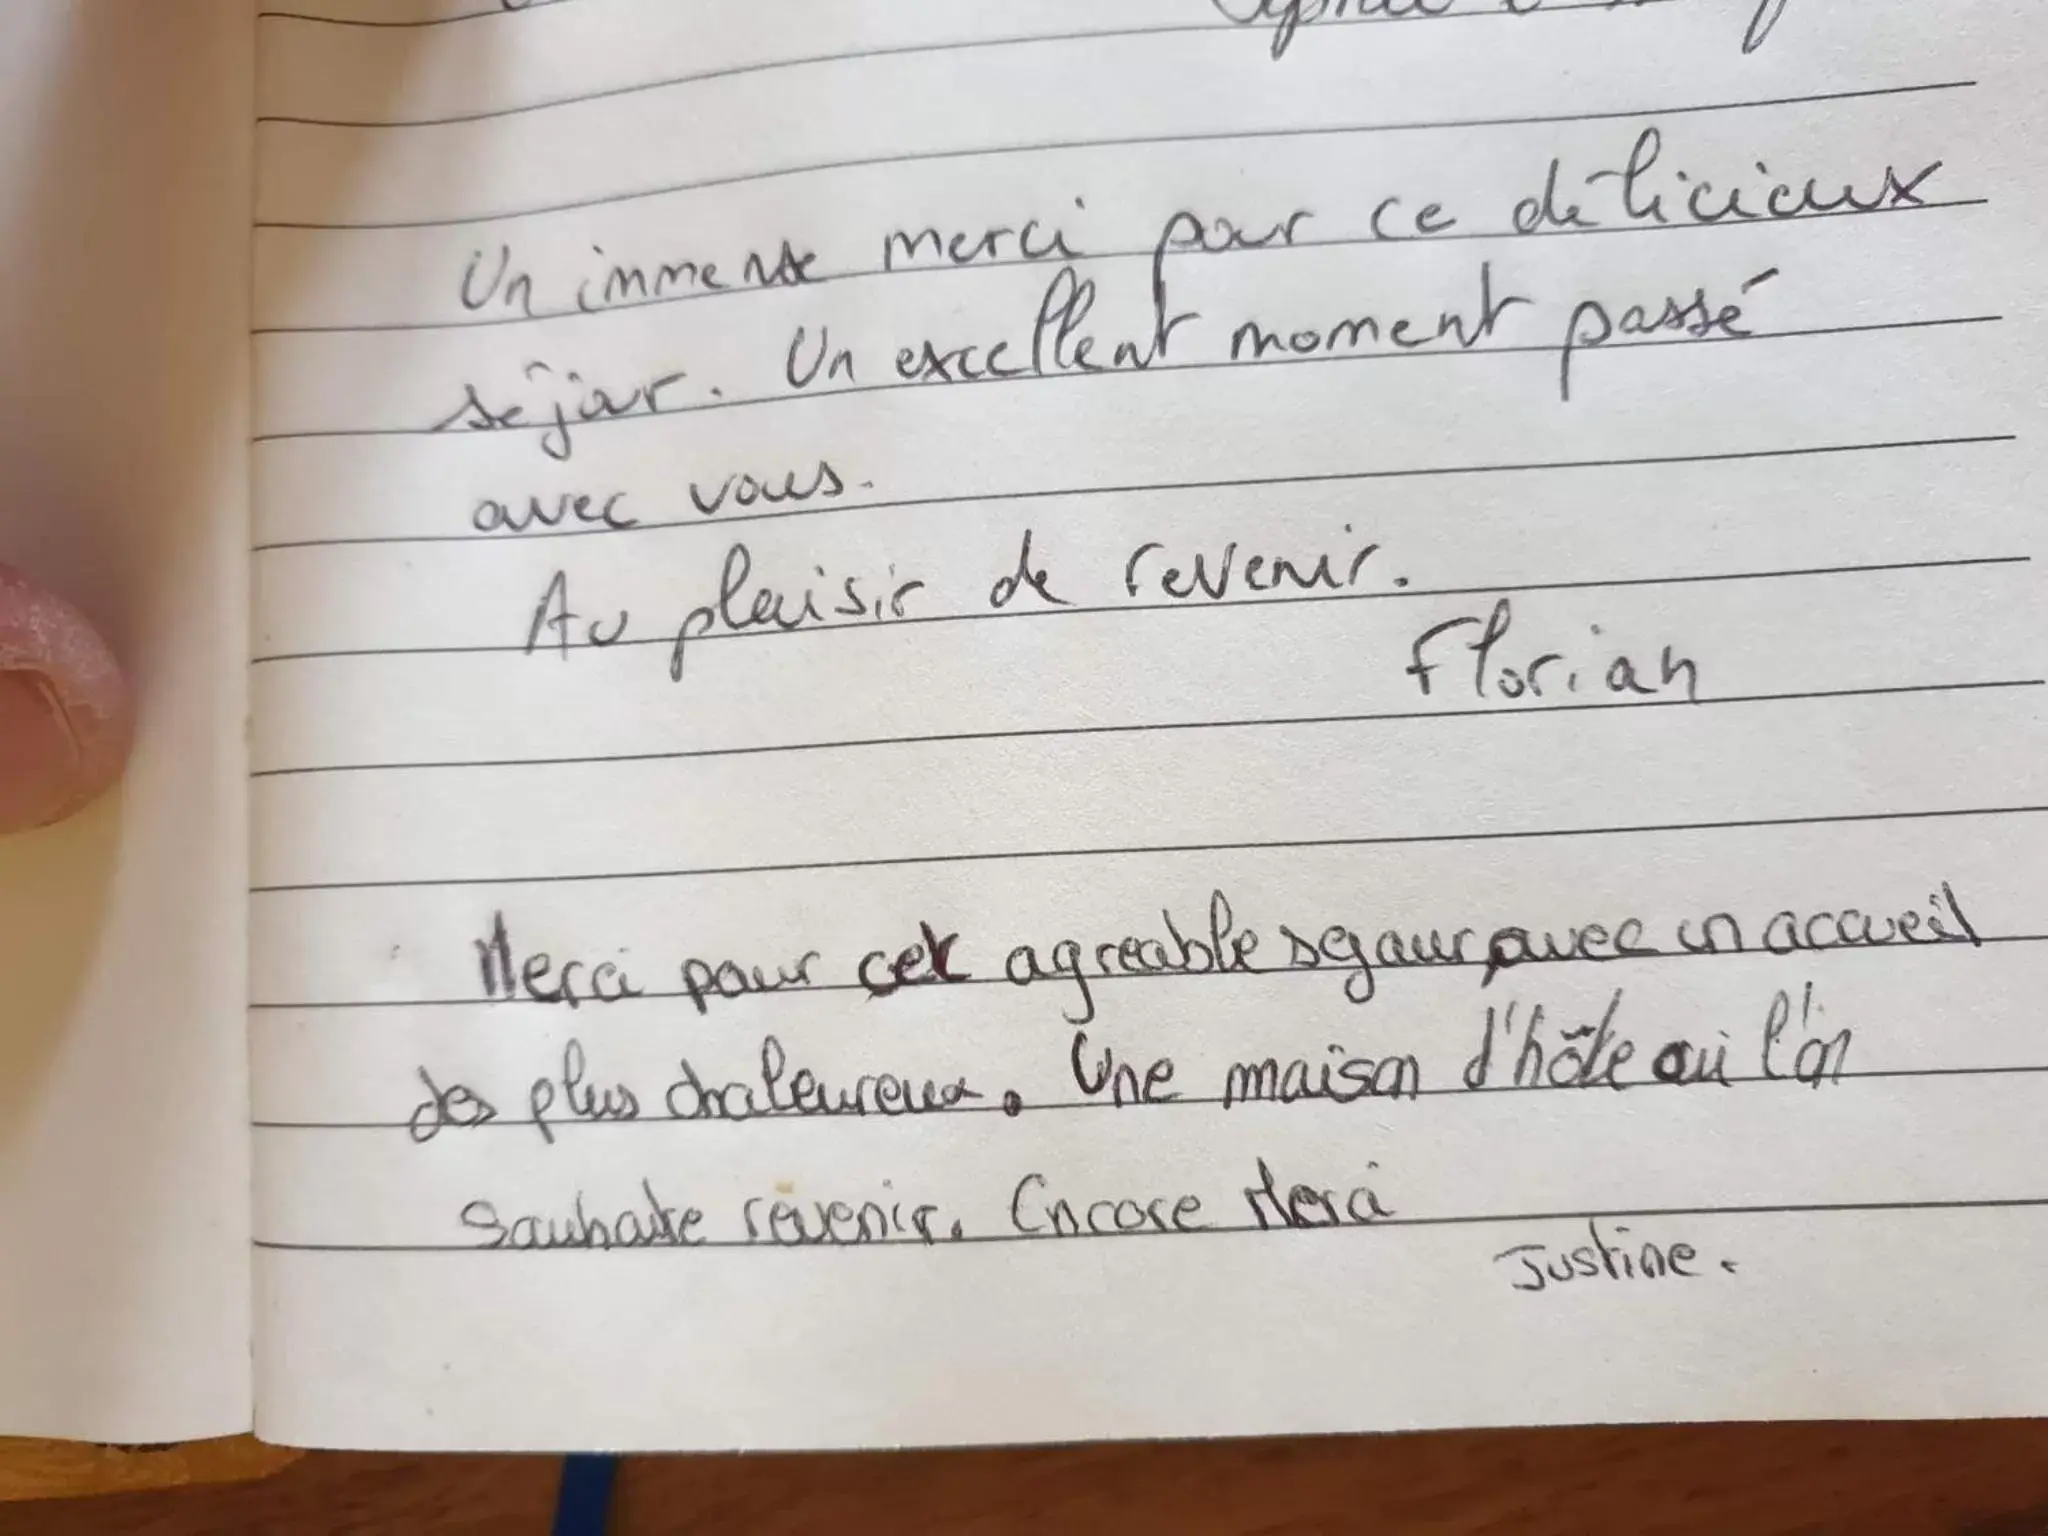 Un immense merci pour ce délicieux
séjour. Un excellent moment passé
avec vous.
Au plaisir de revenir.
Florian
Merci pour cet agreable sejour, avec un accueil
des plus chaleureux. Une maison d'hôte où l'on
souhaite revenir. Encore Merci
Justine.